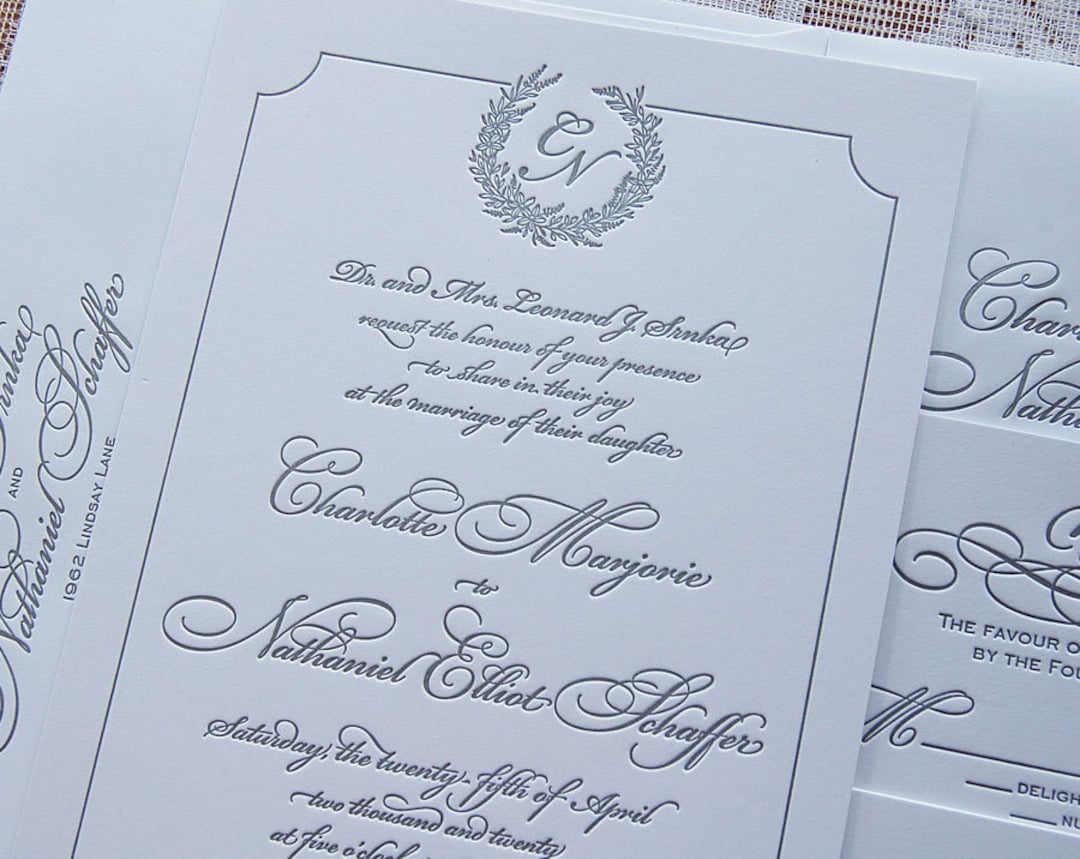 Srnka
AND
Nathaniel Schaffer
1962 LINDSAY LANE
CN
Dr. and Mrs. Leonard J. Srnka
request the honour of your presence
to share in their joy
at the marriage of their daughter
Charlotte Marjorie
to
Nathaniel Elliot Schaffer
Saturday, the twenty-fifth of April
two thousand and twenty
at five o'clock
Char
Natha
THE FAVOUR O
BY THE FOU
M
DELIGH
NU